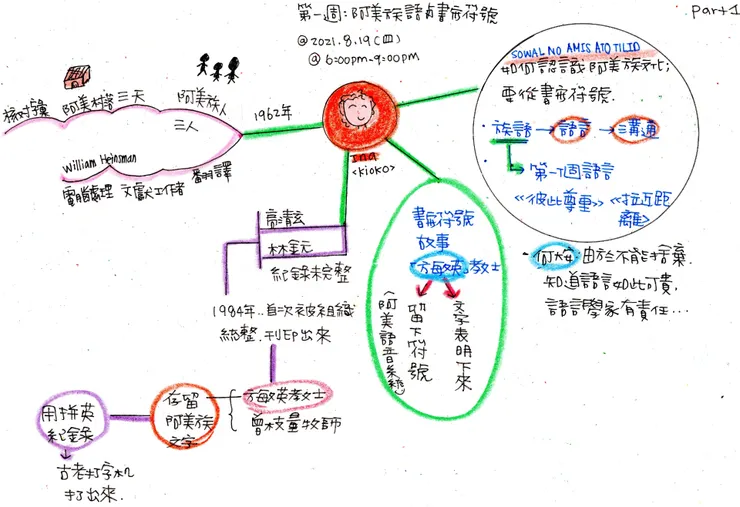 第一週:阿美族語典書寫符號
part 1
@2021.8.19(四)
@6:00pm-9:00pm
SOWAL NO AMIS ATO TILID
如何認識阿美族文化;
要從書寫符號.
族語→語言→溝通
第一個語言
《彼此尊重》《拉近距
離》
核對彙
阿美村落三天
阿美族人
三人
1962年
William Heinsman
電腦處理 文獻工作者 翻譯
Ina
<kioko>
林鈺元
紀錄未完整
1984年..首次被組織
統整.刊印出來
方敏英教士
曾枝量牧師
存留
阿美族
文字
用拼英
紀錄
古老打字机
打出來.
書寫符號
故事
「方敏英」教士
文字表明下來
留下符號
<阿美語音系統>
何大安:由於不能捨棄.
知道語言如此可貴,
語言學家有責任...